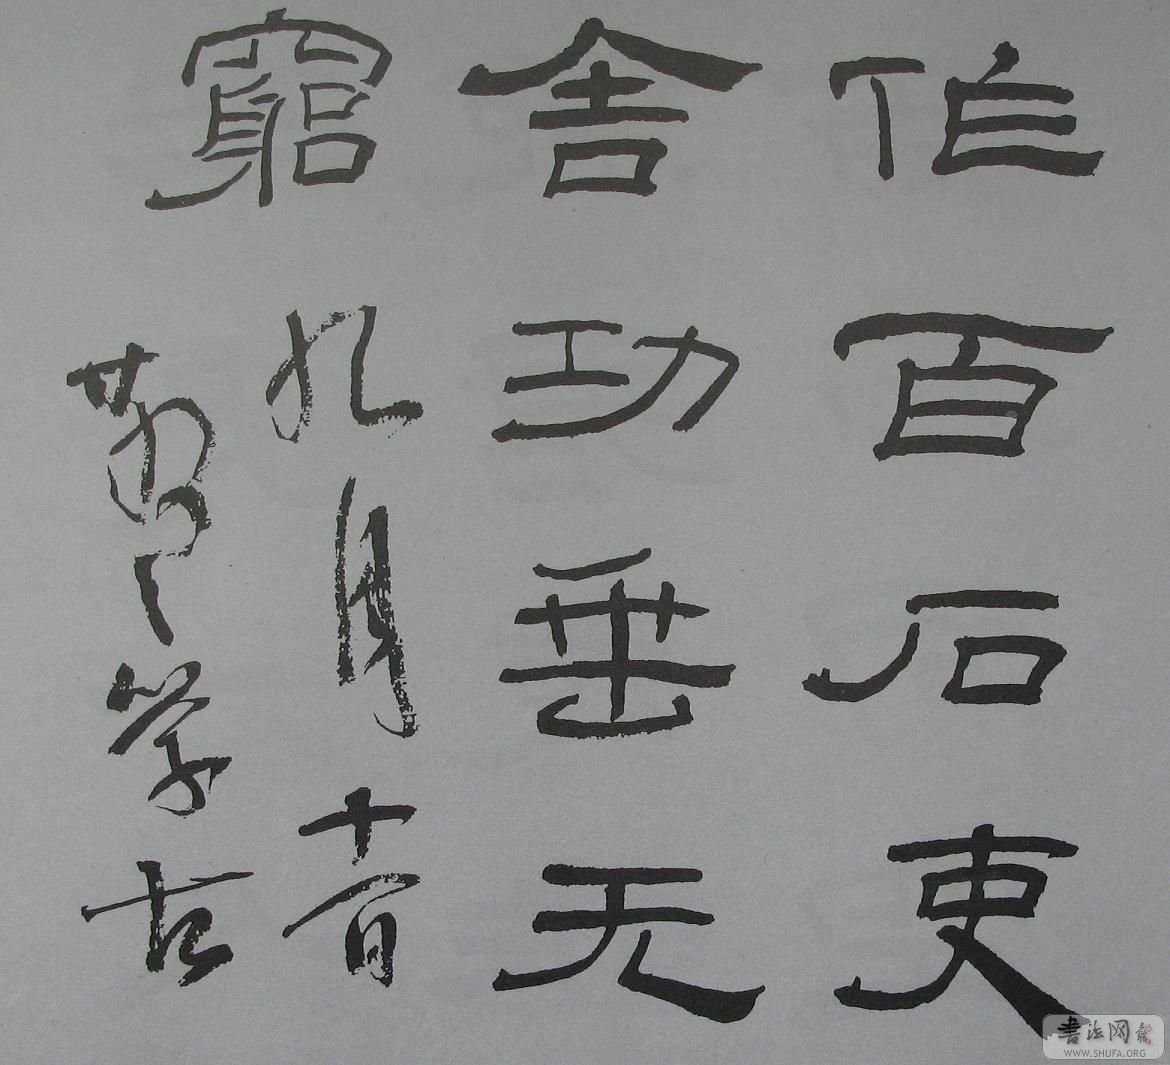 作百石吏
舍功垂无
窮 九月十
学古
書法网
WWW.SHUFA.ORG